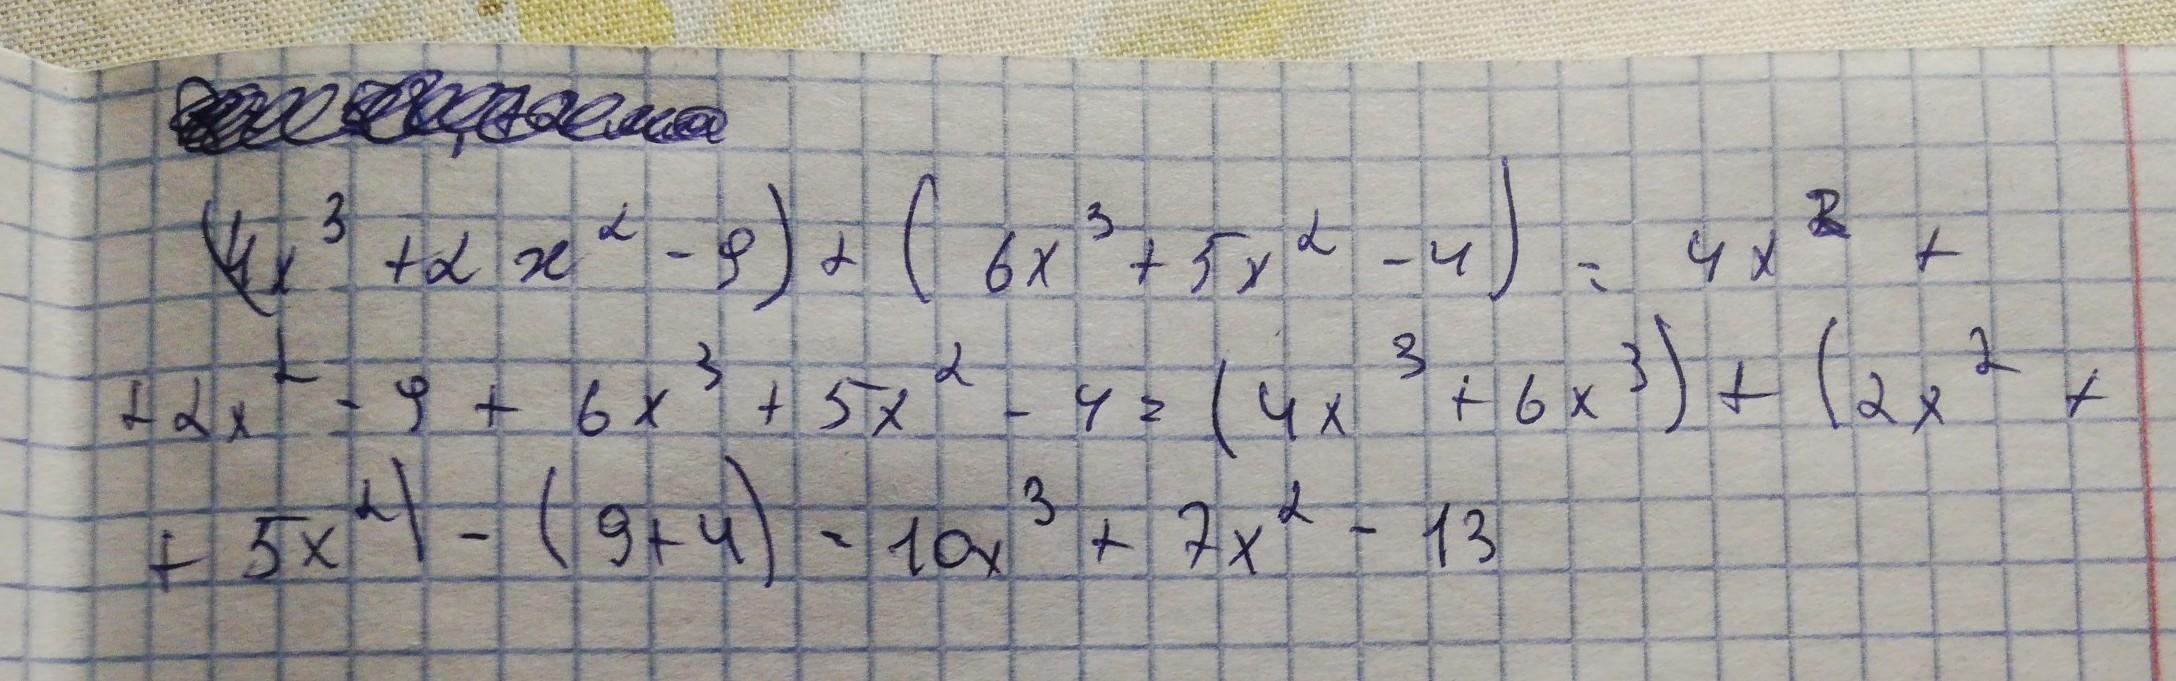 (4x³ + 2x² - 9) + (6x³ + 5x² - 4) = 4x³ +
+ 2x² - 9 + 6x³ + 5x² - 4 = (4x³ + 6x³) + (2x² +
+ 5x²) - (9 + 4) = 10x³ + 7x² - 13